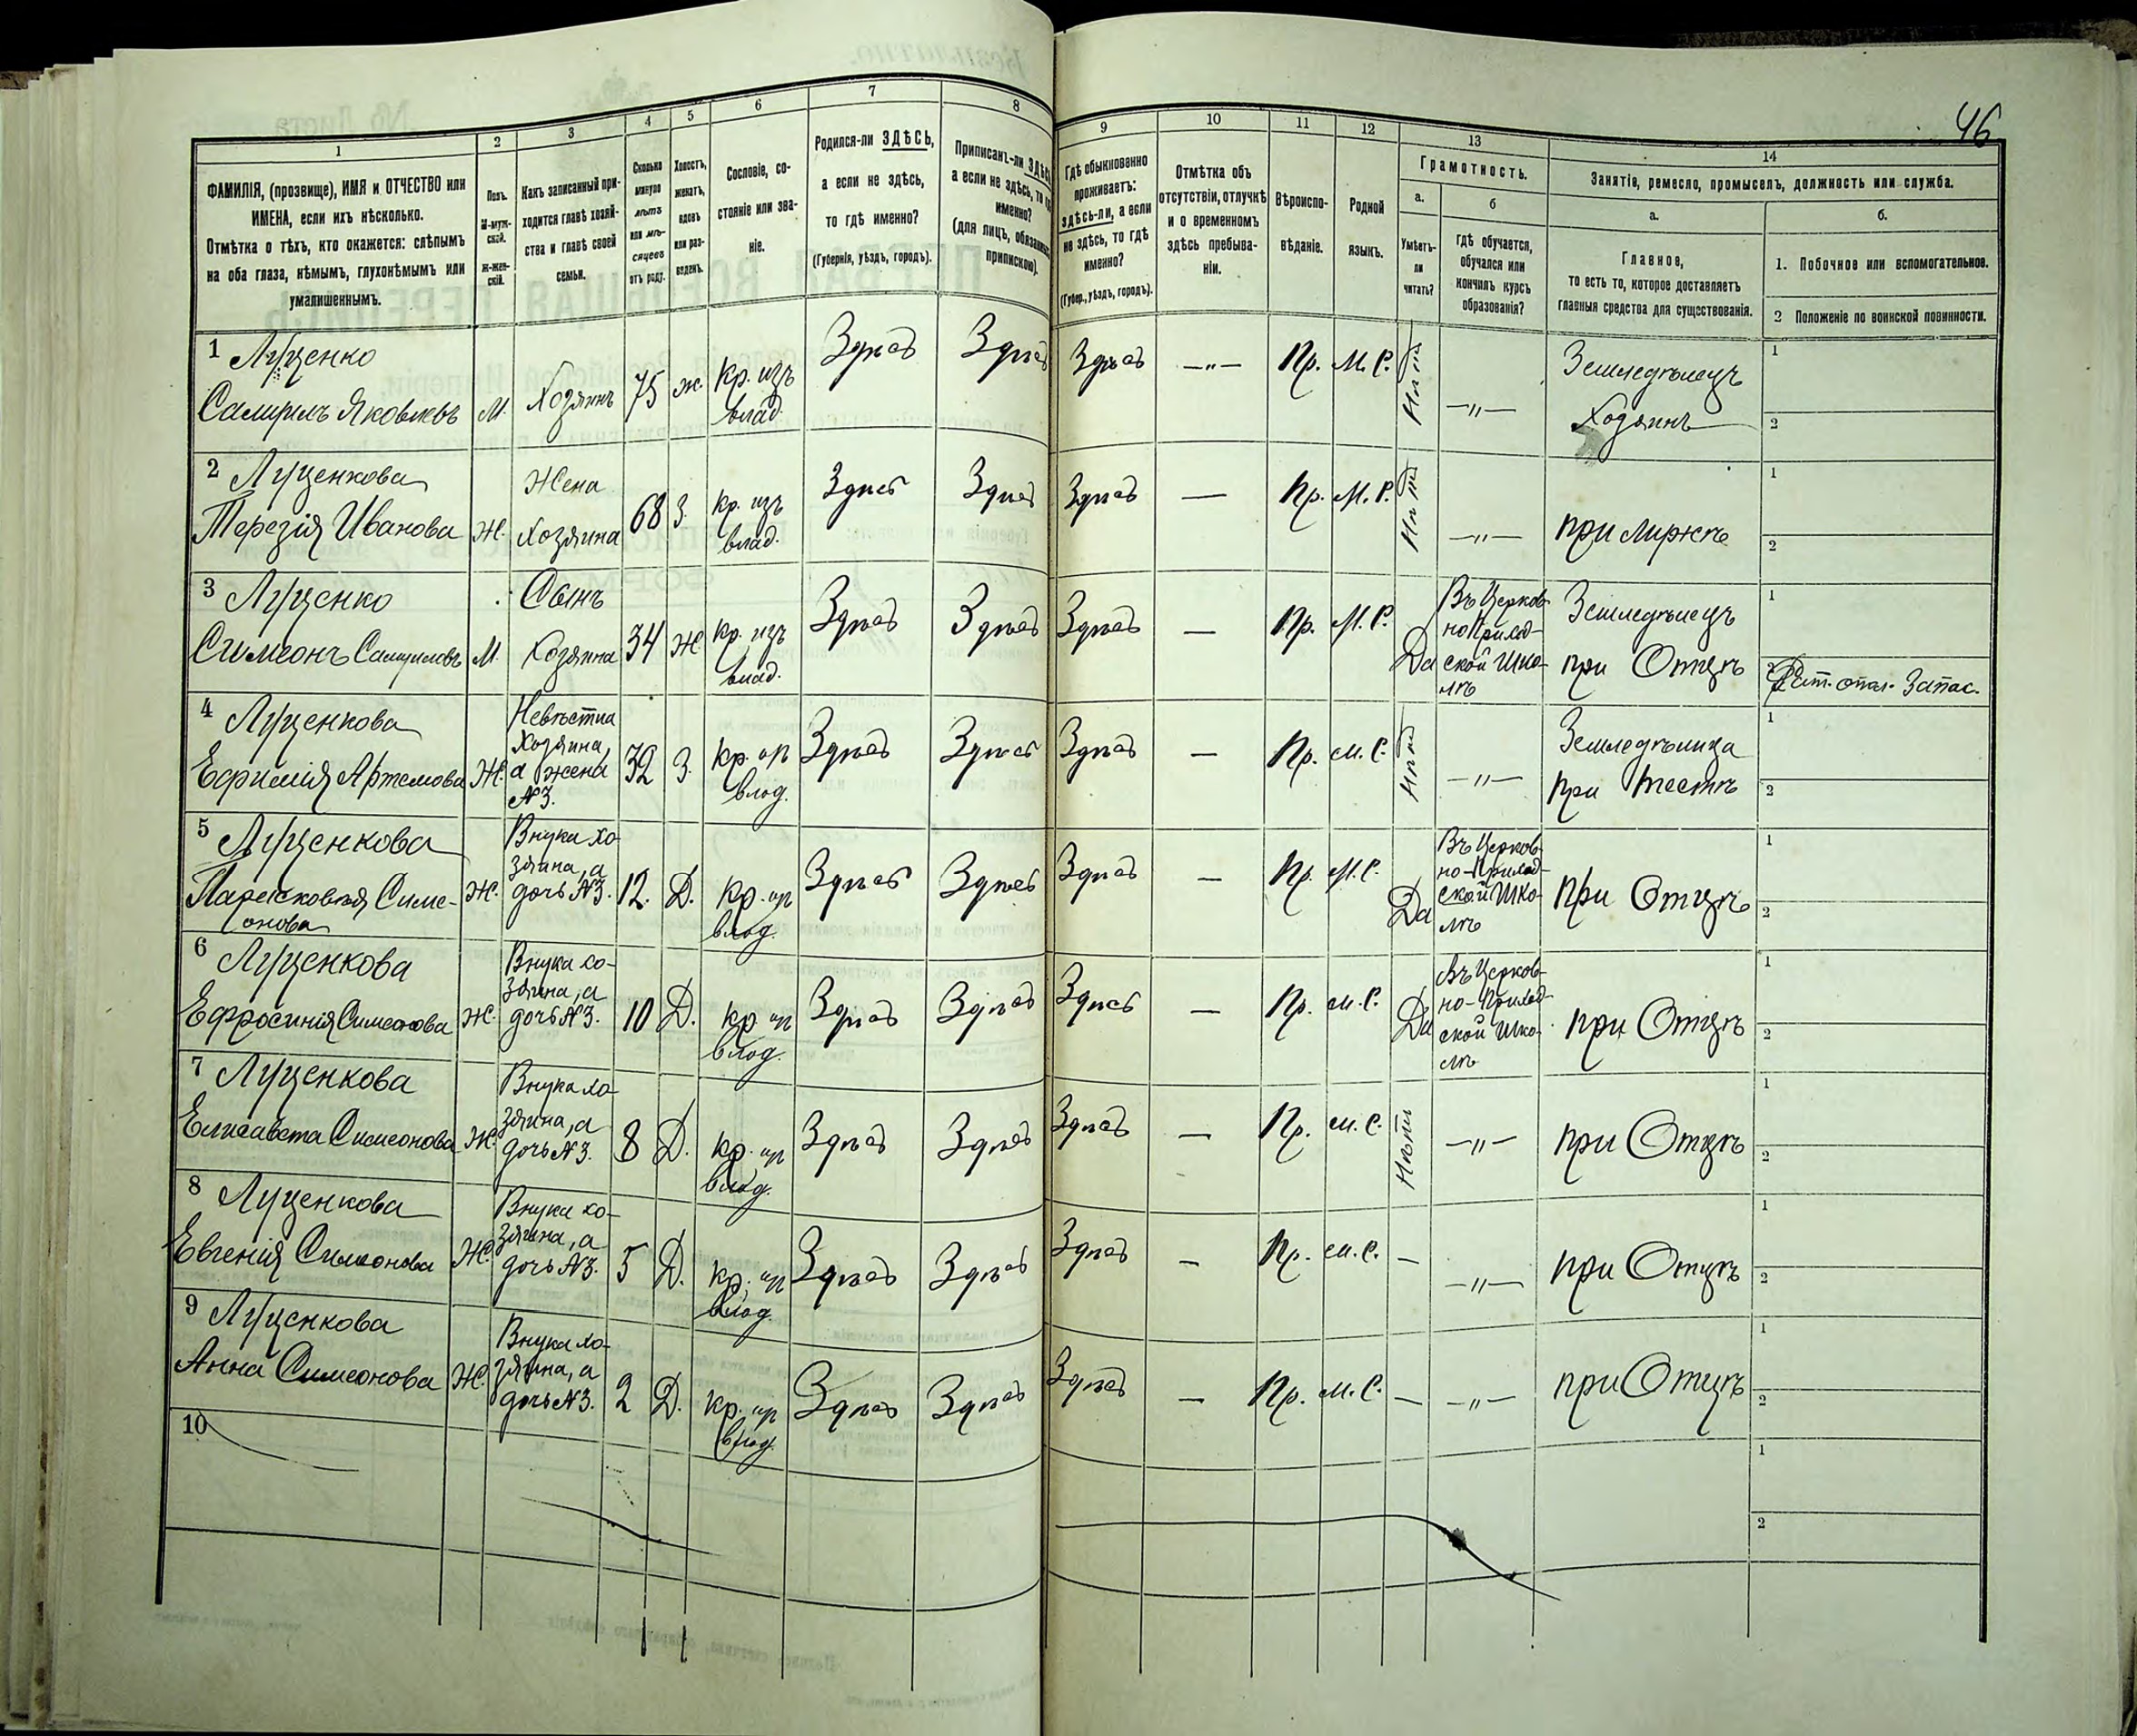 46
1 2 3 4 5 6 7 8 9 10 11 12 13 14
ФАМИЛІЯ, (прозвище), ИМЯ и ОТЧЕСТВО или
ИМЕНА, если ихъ нѣсколько.
Отмѣтка о тѣхъ, кто окажется: слѣпымъ
на оба глаза, нѣмымъ, глухонѣмымъ или
умалишеннымъ.
Полъ.
М-муж-
ской.
Ж-жен-
скій.
Какъ записанный при-
ходится главѣ хозяй-
ства и главѣ своей
семьи.
Сколько
минуло
лѣтъ
или мѣ-
сяцевъ
отъ роду.
Холостъ,
женатъ,
вдовъ
или раз-
веденъ.
Сословіе, со-
стояніе или зва-
ніе.
Родился-ли ЗДѢСЬ,
а если не здѣсь,
то гдѣ именно?
(Губернія, уѣздъ, городъ).
Приписанъ-ли
а если не здѣсь, то
именно?
(для лицъ,
припискою).
Гдѣ обыкновенно
проживаетъ:
здѣсь-ли, а если
не здѣсь, то гдѣ
именно?
(Губер., уѣздъ, городъ).
Отмѣтка объ
отсутствіи, отлучкѣ
и о временномъ
здѣсь пребыва-
ніи.
Вѣроиспо-
вѣданіе.
Родной
языкъ.
Грамотность.
а.
Умѣетъ-
ли
читать?
б
Гдѣ обучается,
обучался или
кончилъ курсъ
образованія?
Занятіе, ремесло, промыселъ, должность или служба.
а.
Главное,
то есть то, которое доставляетъ
главныя средства для существованія.
б.
1. Побочное или вспомогательное.
2 Положеніе по воинской повинности.
1 Луценко
Самуилъ Яковлевъ
М.
Хозяинъ
75
ж.
Кр. изъ
влад.
Здѣсь
Здѣсь
Здѣсь
—"—
Пр.
М. Р.
Нѣтъ
—"—
Земледѣлецъ
Хозяинъ
1
2
2 Луценкова
Терезія Иванова
Ж.
Жена
Хозяина
68
З.
Кр. изъ
влад.
Здѣсь
Здѣсь
Здѣсь
—
Пр.
М. Р.
Нѣтъ
—"—
при мужѣ
1
2
3 Луценко
Симеонъ Самуиловъ
М.
Сынъ
Хозяина
34
Ж.
Кр. изъ
влад.
Здѣсь
Здѣсь
Здѣсь
—
Пр.
М. Р.
Да
Въ Церков-
но Приход-
ской Шко-
лѣ
Земледѣлецъ
при Отцѣ
1
2
Запас.
4 Луценкова
Ефимія Артемова
Ж.
Невѣстка
Хозяина,
а жена
№3.
32
З.
Кр. из
влад.
Здѣсь
Здѣсь
Здѣсь
—
Пр.
М. Р.
Нѣтъ
—"—
Земледѣлица
при тестѣ
1
2
5 Луценкова
Парасковія Симе-
онова
Ж.
Внука хо-
зяина, а
дочь №3.
12.
Д.
Кр. из
влад.
Здѣсь
Здѣсь
Здѣсь
—
Пр.
М. Р.
Да
Въ Церков-
но-Приход-
ской Шко-
лѣ
при Отцѣ
1
2
6 Луценкова
Ефросинія Симеонова
Ж.
Внука хо-
зяина, а
дочь №3.
10
Д.
Кр. из
влад.
Здѣсь
Здѣсь
Здѣсь
—
Пр.
М. Р.
Да
Въ Церков-
но-Приход-
ской Шко-
лѣ
при Отцѣ
1
2
7 Луценкова
Елисавета Симеонова
Ж.
Внука хо-
зяина, а
дочь №3.
8
Д.
Кр. из
влад.
Здѣсь
Здѣсь
Здѣсь
—
Пр.
М. Р.
Нѣтъ
—"—
при Отцѣ
1
2
8 Луценкова
Евгенія Симеонова
Ж.
Внука хо-
зяина, а
дочь №3.
5
Д.
Кр. из
влад.
Здѣсь
Здѣсь
Здѣсь
—
Пр.
М. Р.
—
—"—
при Отцѣ
1
2
9 Луценкова
Анна Симеонова
Ж.
Внука хо-
зяина, а
дочь №3.
2
Д.
Кр. из
влад.
Здѣсь
Здѣсь
Здѣсь
—
Пр.
М. Р.
—
—"—
при Отцѣ
1
2
10
1
2